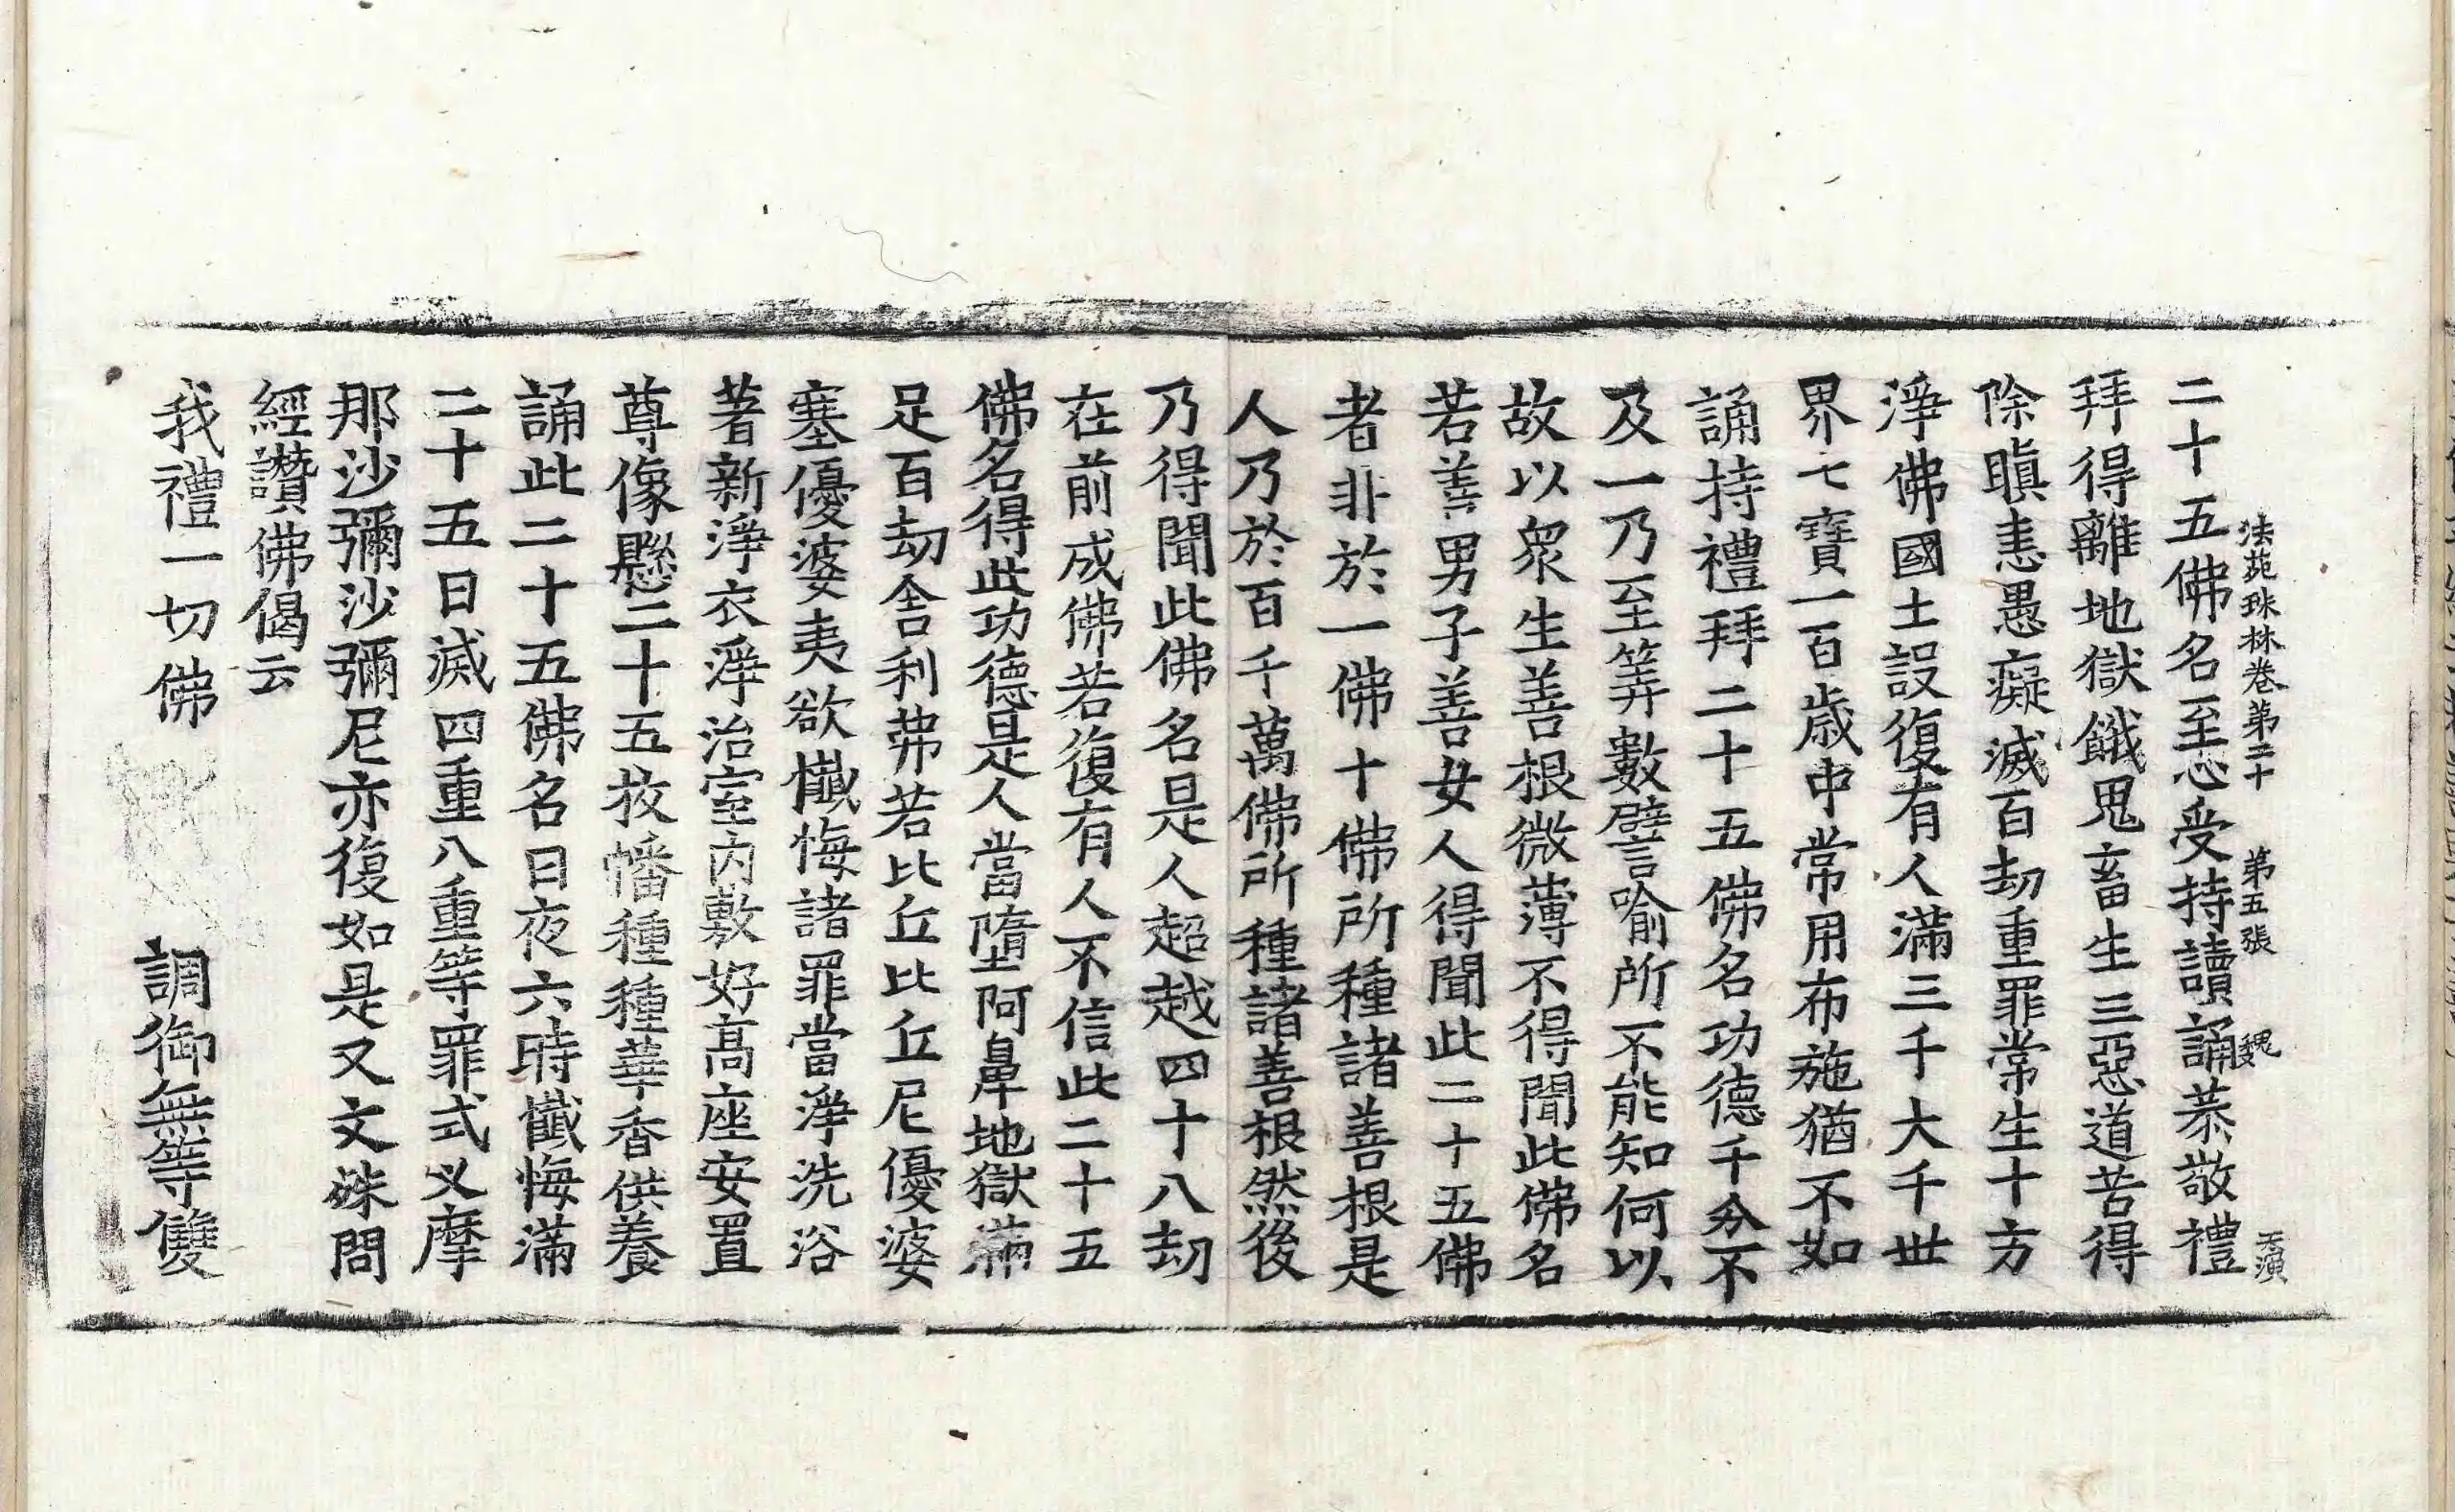 法苑珠林卷第二十 第五張 魏
二十五佛名至心受持讀誦恭敬禮
拜得離地獄餓鬼畜生三惡道苦得
除瞋恚愚癡滅百劫重罪常生十方
淨佛國土設復有人滿三千大千世
界七寶一百歲中常用布施猶不如
誦持禮拜二十五佛名功德千分不
及一乃至筭數譬喻所不能知何以
故以眾生善根微薄不得聞此佛名
若善男子善女人得聞此二十五佛
者非於一佛十佛所種諸善根是
人乃於百千萬佛所種諸善根然後
乃得聞此佛名是人超越四十八劫
在前成佛若復有人不信此二十五
佛名得此功德是人當墮阿鼻地獄滿
足百劫舍利弗若比丘比丘尼優婆
塞優婆夷欲懺悔諸罪當淨洗浴
著新淨衣淨治室內敷好高座安置
尊像懸二十五枚幡種種華香供養
誦此二十五佛名日夜六時懺悔滿
二十五日滅四重八重等罪式叉摩
那沙彌沙彌尼亦復如是又文殊問
經讚佛偈云
我禮一切佛 調御無等雙